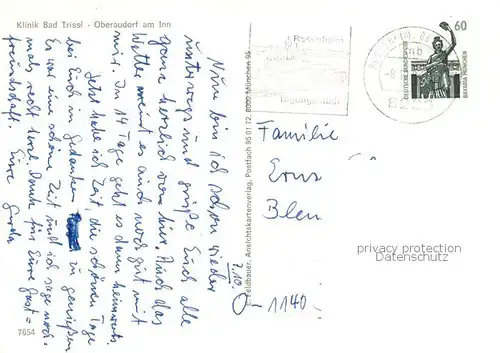 Klinik Bad Trissl - Oberaudorf am Inn
Nun bin ich schon wieder
unterwegs und grüße Euch alle
ganz herzlich von hier. Auch das
Wetter meint es auch noch gut mit
mir. In 14 Tage geht es dann heimwärts.
Jetzt habe ich Zeit, die schönen Tage
bei Euch in Gedanken zu genießen.
Es war eine schöne Zeit und ich sage noch-
mals recht herzl. Dank für Eure Gast=
freundschaft. Eure
7654
E. Feldbauer, Ansichtskartenverlag, Postfach 95 01 72, 8000 München 95
Rosenheim
Tagungsstadt
60
DEUTSCHE BUNDESPOST
BAVARIA MÜNCHEN
Familie
Ernst
Blen
7.10.
A-1140
privacy protection
Datenschutz